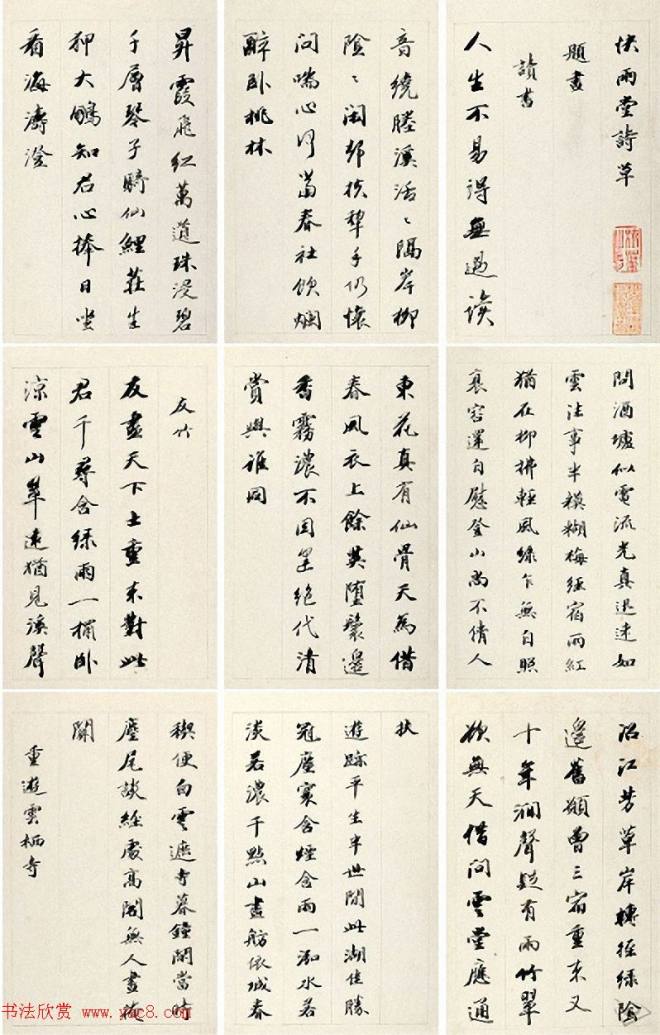 快雨堂詩草
題畫
讀書
人生不易得無過讀
音繞塍溪活〻隔岸柳
陰〻閑却扶犁手仍懷
問喘心何當春社飲爛
醉卧桃林
昇霞飛紅萬道珠浸碧
千層琴子騎仙鯉莊生
狎大鵬知君心捧日坐
看海濤澄
問酒壚似電流光真迅速如
雲法事半模糊梅經宿雨紅
猶在柳拂輕風綠乍無自照
衰容還自慰登山尚不倩人
東花真有仙骨天為借
春風衣上餘英墮鬟邊
香霧濃不因呈絕代清
賞與誰同
友竹
友盡天下士重來對此
君千尋含綠雨一榻卧
涼雲山翠遠猶見溪聲
沿江芳草岸轉徑綠陰
邊舊頗曾三宿重來又
十年澗聲疑有雨竹翠
欲無天借問雲堂應通
扶
遊踪平生半世閒此湖佳勝
冠塵寰含煙含雨一泓水若
淡若濃千點山畫舫依城春
稧便白雲遮寺暮鐘閒當時
麈尾談經處高閣無人盡掩
關
重遊雲栖寺
书法欣赏 www.yac8.com